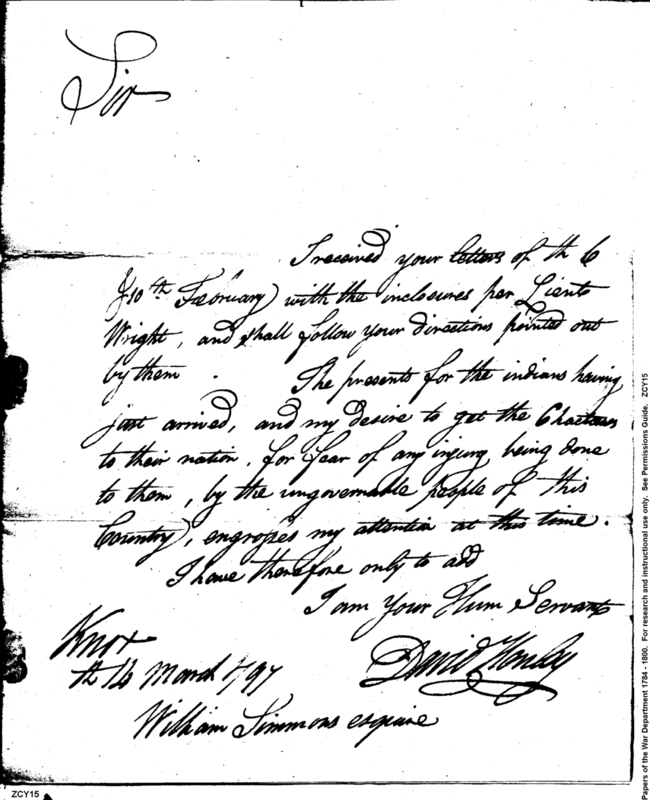 Sir
I received your letters of th 6
& 10th February, with the inclosures per Lieut
Wright, and shall follow your directions pointed out
by them. The presents for the indians having
just arrived, and my desire to get the
to their nation, for fear of any injury being done
to them, by the ungovernable people of this
Country, engrosses my attention at this time.
I have therefore only to add
I am your Hum Servant
David Henley
Knox
th 14 March 1797
William Simmons esquire
ZCY15
Papers of the War Department 1784 - 1800. For research and instructional use only. See Permissions Guide. ZCY15